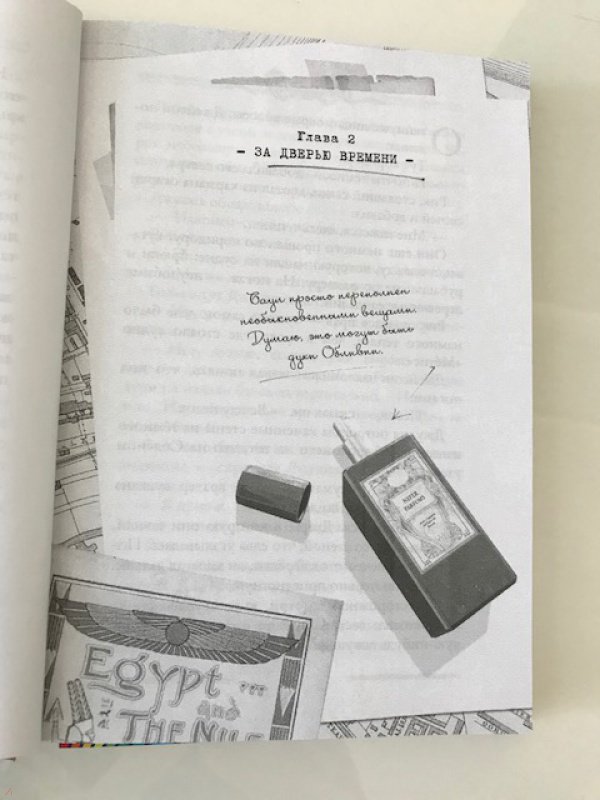 Глава 2
– ЗА ДВЕРЬЮ ВРЕМЕНИ –
Саул просто переполнен
необыкновенными вещами.
Думаю, это могут быть
духи Обливии.
PARFUMS
Egypt
and
THE NILE